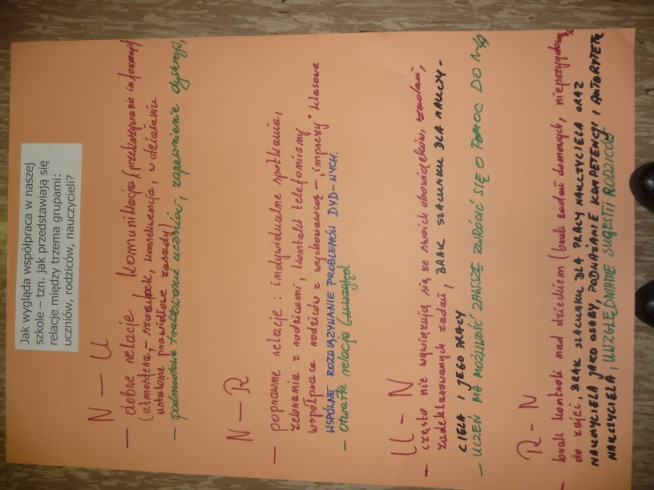 Jak wygląda współpraca w naszej
szkole – tzn. jak przedstawiają się
relacje między trzema grupami:
uczniów, rodziców, nauczycieli?
N – U
– dobre relacje, komunikacja (przekazywanie informacji)
(atmosfera, szacunek, konsekwencja, w działaniu
ustalone prawidłowe zasady)
– podmiotowe traktowanie uczniów, zapewnienie dyskrecji,
N – R
– poprawne relacje: indywidualne spotkania,
zebrania z rodzicami, kontakt telefoniczny
współpraca rodziców z wychowawcą – imprezy klasowe
WSPÓLNE ROZWIĄZYWANIE PROBLEMÓW DYD-WYCH.
– Otwarte relacje
U – N
– często nie wywiązują się ze swoich obowiązków,
zadeklarowanych zadań, BRAK SZACUNKU DLA NAUCZY-
CIELA I JEGO PRACY
– UCZEŃ MA MOŻLIWOŚĆ ZAWSZE ZWRÓCIĆ SIĘ O POMOC DO N-LA
R – N
– brak kontroli nad dzieckiem (brak zadań domowych,
do zajęć, BRAK SZACUNKU DLA PRACY NAUCZYCIELA ORAZ
NAUCZYCIELA JAKO OSOBY, PODWAŻANIE KOMPETENCJI I AUTORYTETU
NAUCZYCIELA, UWZGLĘDNIANIE SUGESTII RODZICÓW